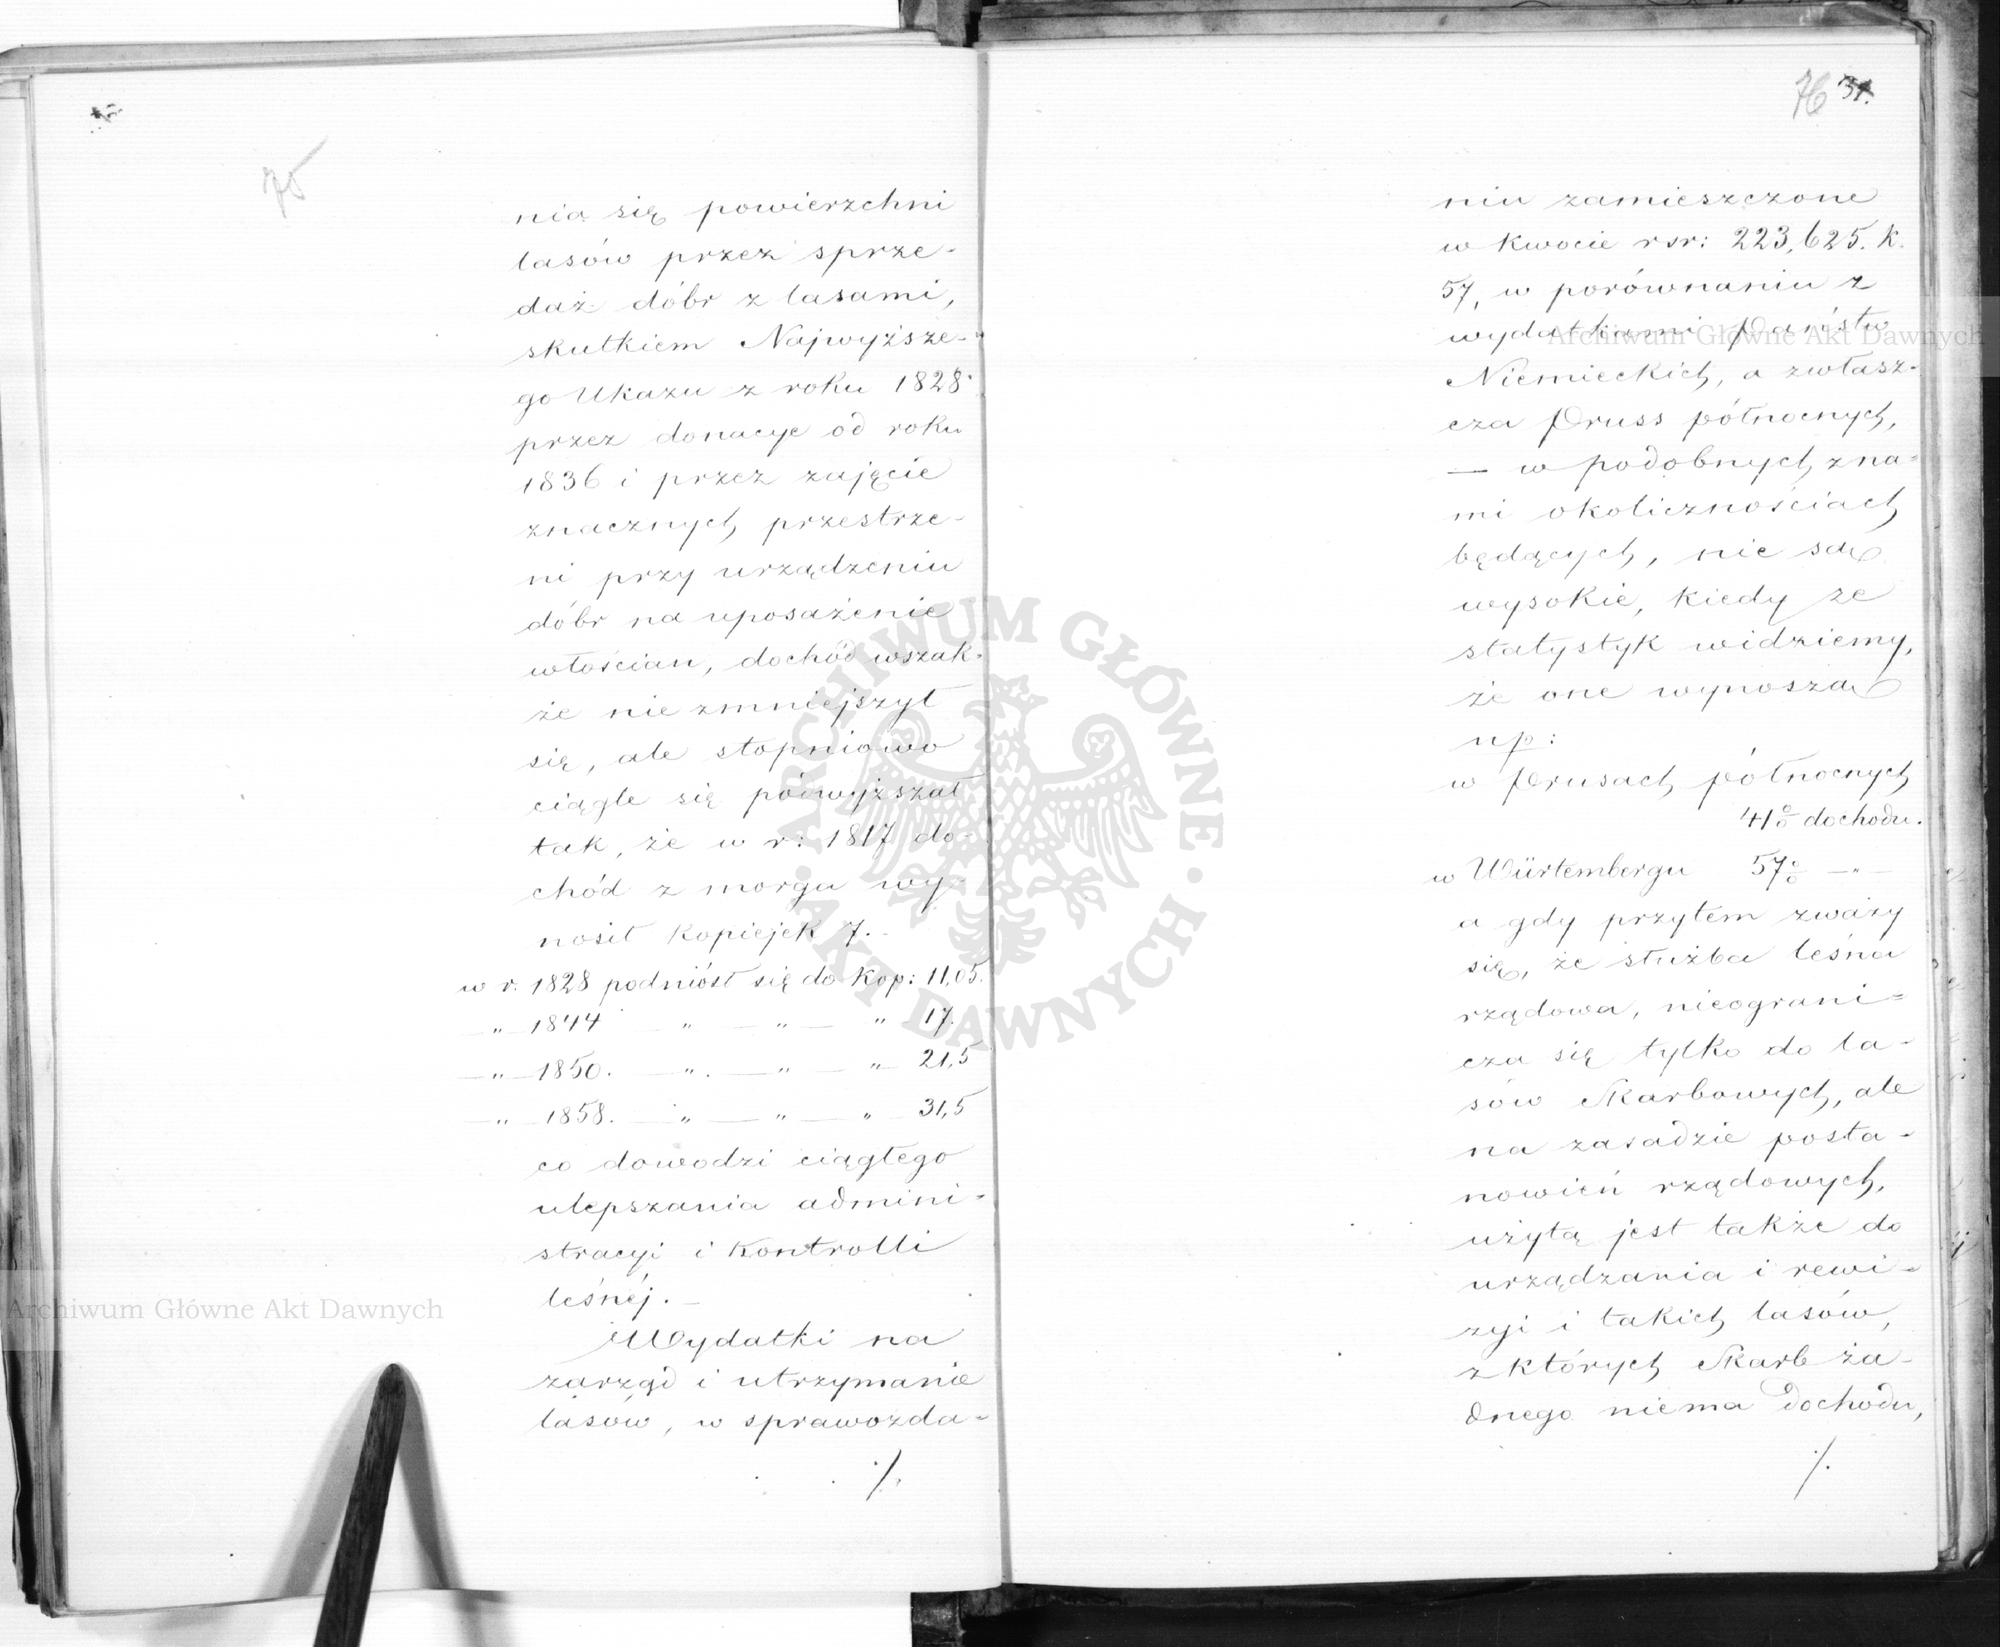 75
nia się powierzchni
lasów przez sprze-
daż dóbr z lasami,
skutkiem Najwyższe-
go Ukazu z roku 1828
przez donacye od roku
1836 i przez zajęcie
znacznych przestrze-
ni przy urządzeniu
dóbr na uposażenie
włościan, dochód wszak-
że nie zmniejszył
się, ale stopniowo
ciągle się podwyższał
tak, że w r: 1817 do-
chód z morgu wy-
nosił Kopiejek 7.-
w r. 1828 podniósł się do Kop: 11,05.
—„— 1844 — „ — „ — „ 17.
—„— 1850. — „ . — „ — „ 21,5
—„— 1858. — „ — „ — „ 31,5
co dowodzi ciągłego
ulepszania admini-
stracyi i Kontrolli
leśnéj.-
Wydatki na
zarząd i utrzymanie
lasów, w sprawozda-
./.
76 31.
niu zamieszczone
w kwocie rsr: 223,625. k.
57, w porównaniu z
wydatkami Państw
Niemieckich, a zwłasz-
cza Pruss północnych,
— w podobnych zna-
mi okolicznościach
będących, nie są
wysokie, kiedy ze
statystyk widziemy,
że one wynoszą
np:
w Prusach północnych
41% dochodu.
w Würtembergu 57% —„—
a gdy przytem zważy
się, że służba leśna
rządowa, nieograni-
cza się tylko do la-
sów Skarbowych, ale
na zasadzie posta-
nowień rządowych,
użytą jest także do
urządzania i rewi-
zyi i takich lasów,
z których Skarb ża-
dnego niema dochodu,
./.
Archiwum Główne Akt Dawnych
Archiwum Główne Akt Dawnych
ARCHIWUM GŁÓWNE · AKT DAWNYCH ·